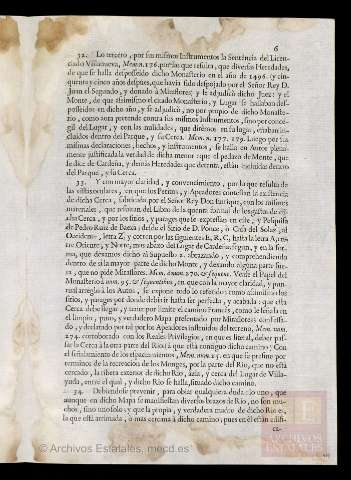 6
32. Lo tercero, por sus mismos Instrumentos la Sentencia del Licenciado
Villanueva, Mem. n. 176. por las que resulta, que diversas Heredades,
de que se halla despossedo dicho Monasterio en el año de 1496. (y cinquenta
y cinco años despues, que havia sido despojado por el Señor Rey D.
Juan el Segundo, y donado à Miraflores) se le adjudicò dicho Juez: y el
Monte, de que assimismo el citado Monasterio, y Lugar se hallaban despossedos
en dicho año, y se le adjudicò, no por proprio de dicho Monasterio,
como aora pretende contra sus mismos Instrumentos, sino por concegil
del Lugar, y con las
del Parque, y su Cerca. Mem. n. 177. 179. Luego por sus
mismas declaraciones, hechos, y instrumentos, se halla en Autos plenamente
justificada la verdad de dicha menor: que el pedazo de Monte, que
se dice de Cardeña, y demàs Heredades que detenta, estàn incluidas dentro
del Parque, y su Cerca.
33. Y con mayor claridad, y convencimiento, por lo que resulta de
las vistas oculares, en que los Peritos, y Apeadores contestan la existencia
de dicha Cerca, fabricada por el Señor Rey Don Enrique, con los mismos
materiales, que resultan del Libro de la quenta formal de los gastos de dicha
Cerca, y por los sitios, y parages que le expressan en este, y Pesquisa
de Pedro Ruiz de Baeza: desde el Sitio de D. Ponce, ò Casa del Soto, al
Occidente, letra Z, y corren por las siguientes
Oriente, y Norte, mas abaxo del Lugar de Cardeña, siguen, y en la forma,
que dexamos dicho
dentro de sì la mayor parte de dicho Monte, y dexando alguna parte fuera,
que no pide Miraflores. Mem. à num. 270. & sequent. Vease el Papel del
Monasterio à num. 95. & sequentibus, en que con la mayor claridad, y puntual
arreglo à los Autos, se expone todo lo referido: como assimismo los
sitios, y parages por donde debiò ir hasta ser perfecta, y acabada: que esta
Cerca debe llegar, y tener por limite el camino francès, como se señala en
el limpio, puro, y verdadero Mapa presentado por Miraflores
y declarado por tal por los Apeadores instruidos del terreno, Mem. num.
274. corroborado con los Reales Privilegios, en que es literal, deber passar
la Cerca à la otra parte del Rio à que està contiguo dicho camino: Con
el señalamiento de los espaciamientos, Mem. num. 25. en que se prefine por
terminos de la recreacion de los Monges, por la parte del Rio, que no està
cercado, la ribera exterior de dicho Rio, àzia, y cerca del Lugar de Villayuda,
entre el qual, y dicho Rio se halla, situado dicho camino.
34. Debiendose prevenir, para obiar qualquiera duda: lo uno, que
aunque en dicho Mapa se manifiestan diversos brazos de Rio, no son muchos,
sino uno solo: y que la propia, y verdadera madre de dicho Rio e,
la que està arrimada, ò mas cercana à dicho camino, pues en èl estàn edifi-
ce-
© Archivos Estatales, mecd.es
ARCHIVOS
ESTATALES